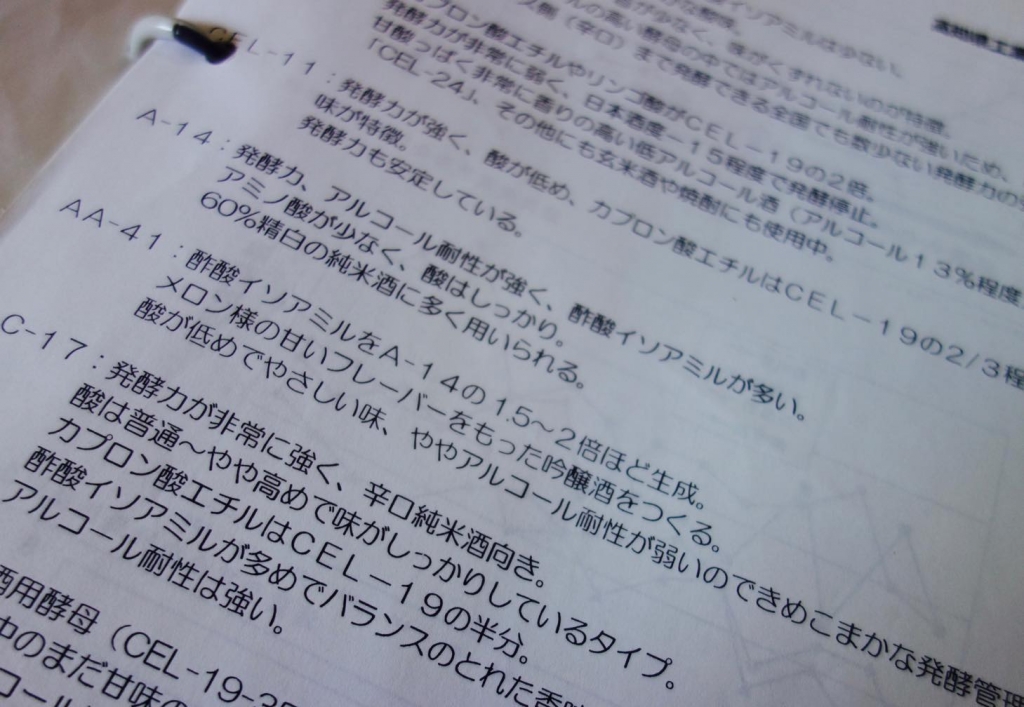 イソアミルは少ない。
が少なく、味がくずれないのが特徴。
の高い酵母の中ではアルコール耐性が強いため、
（辛口）まで発酵できる全国でも数少ない発酵力の
カプロン酸エチルやリンゴ酸がCEL－19の2倍。
発酵力が非常に弱く、日本酒度－15程度で発酵停止。
甘酸っぱく非常に香りの高い低アルコール酒（アルコール13%程度
「CEL-24」、その他にも玄米酒や焼酎にも使用中。
CEL-11：発酵力が強く、酸が低め、カプロン酸エチルはCEL－19の2/3程
味が特徴。
発酵力も安定している。
A-14：発酵力、アルコール耐性が強く、酢酸イソアミルが多い。
アミノ酸が少なく、酸はしっかり。
60%精白の純米酒に多く用いられる。
AA-41：酢酸イソアミルをA-14の1.5～2倍ほど生成。
メロン様の甘いフレーバーをもった吟醸酒をつくる。
酸が低めでやさしい味、ややアルコール耐性が弱いのできめこまかな発酵管理
C-17：発酵力が非常に強く、辛口純米酒向き。
酸は普通～やや高めで味がしっかりしているタイプ。
カプロン酸エチルはCEL－19の半分。
酢酸イソアミルが多めでバランスのとれた香味
アルコール耐性は強い。
酒用酵母（CEL-19-
中のまだ甘味の
コール